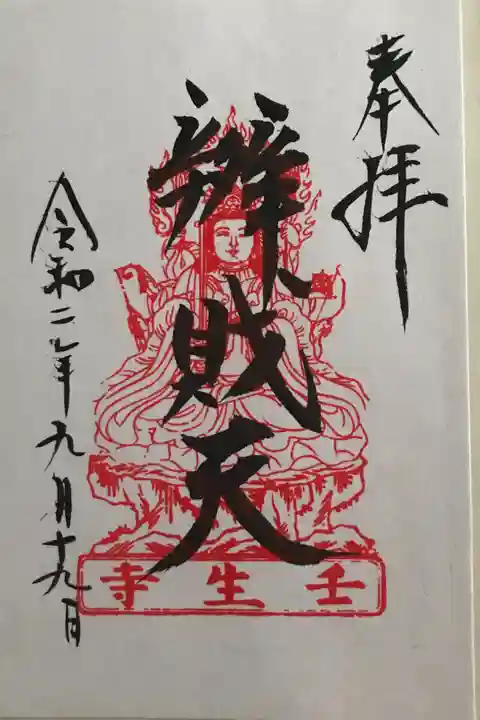 奉拝
辨財天
令和二年九月十九日
壬生寺